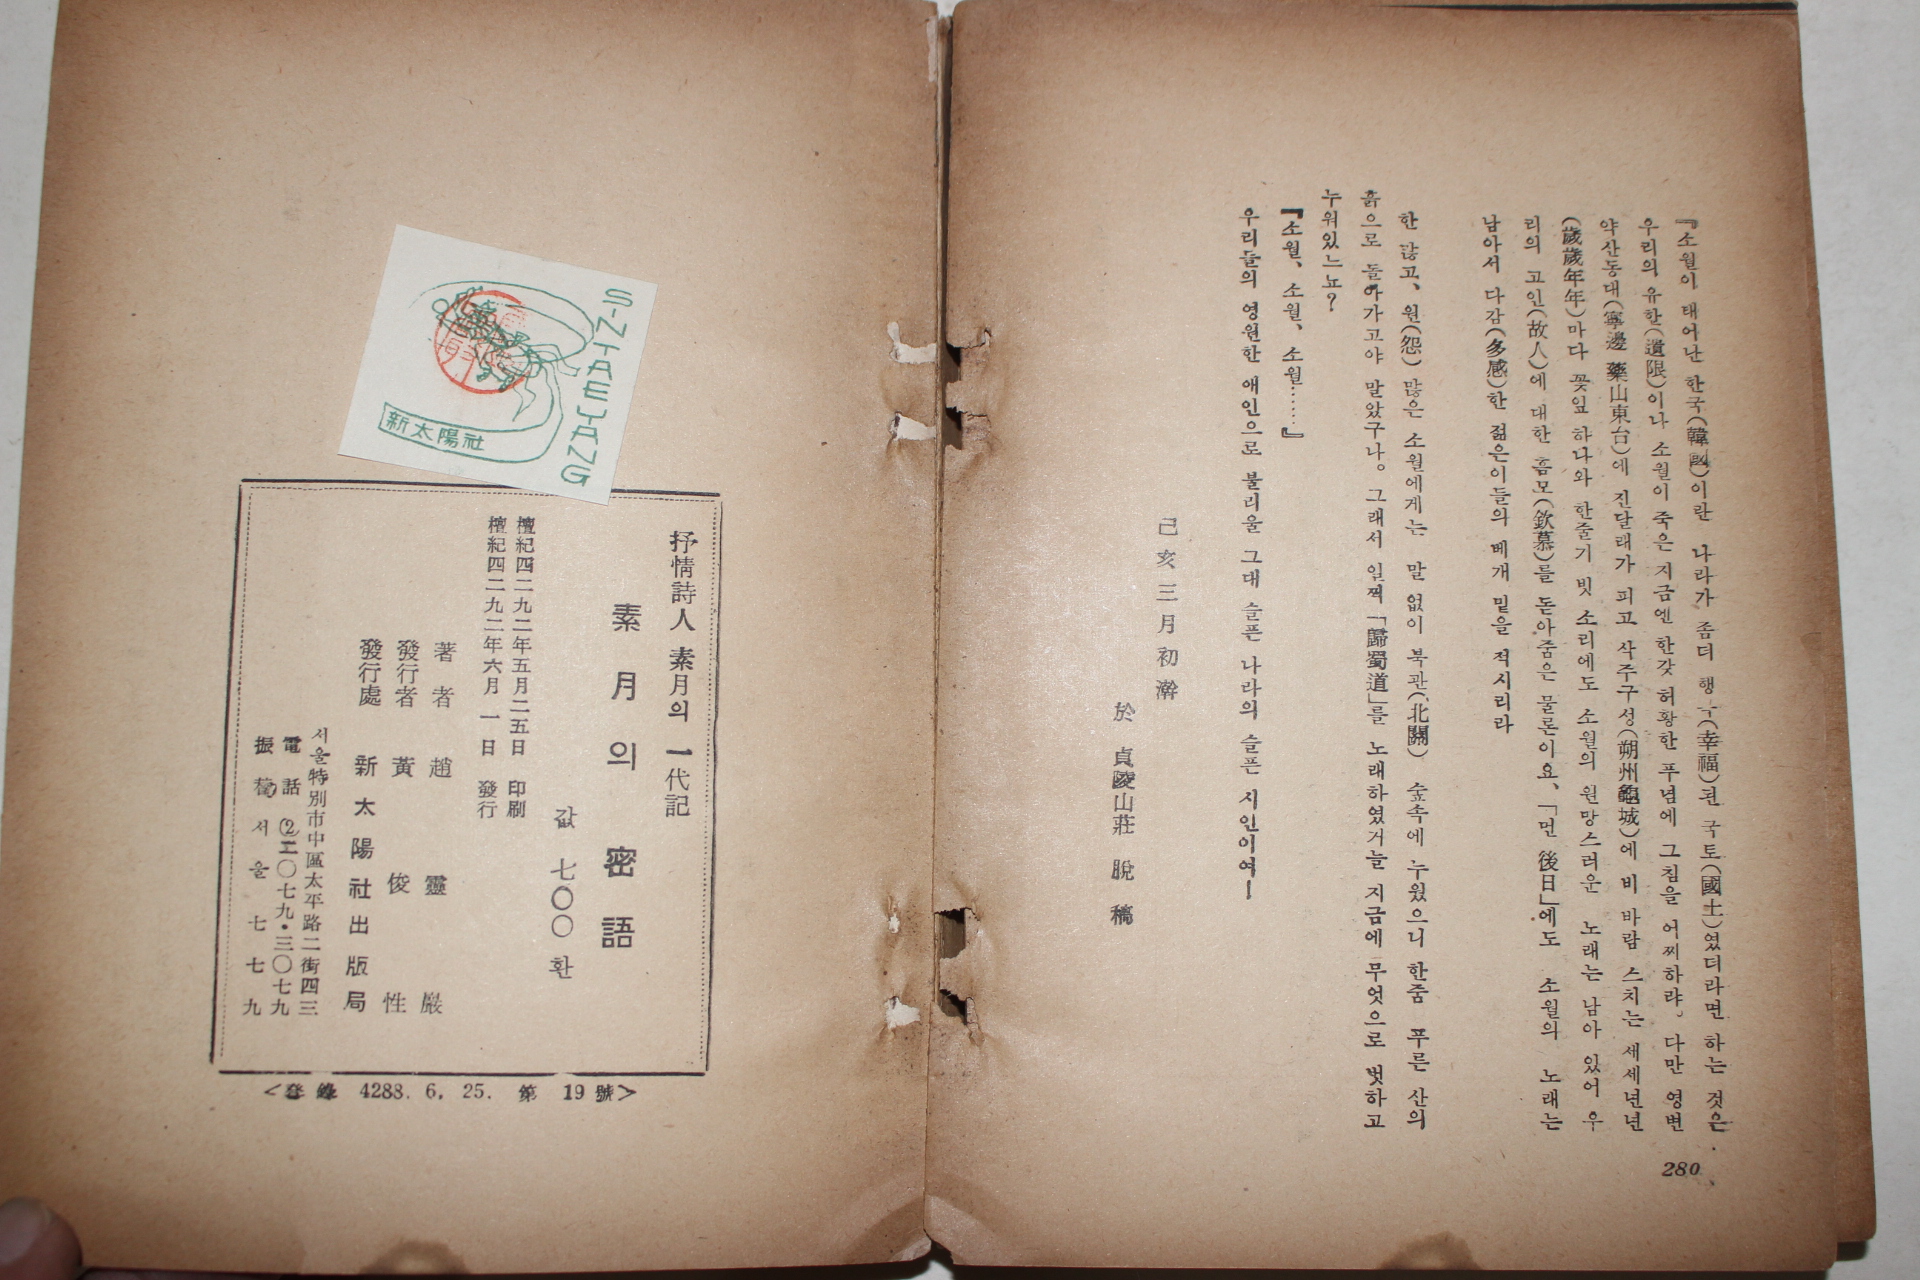 『소월이 태어난 한국(韓國)이란 나라가 좀더 행극(幸福)된 국토(國土)였더라면 하는 것은
우리의 유한(遺限)이나 소월이 죽은 지금엔 한갓 허황한 푸념에 그침을 어찌하랴。 다만 영변
약산동대(寧邊 藥山東台)에 진달래가 피고 삭주구성(朔州龜城)에 비 바람 스치는 세세년년
(歲歲年年)마다 꽃잎 하나와 한줄기 빗 소리에도 소월의 원망스러운 노래는 남아 있어 우
리의 고인(故人)에 대한 흠모(欽慕)를 돋아줌은 물론이요、「먼 後日」에도 소월의 노래는
남아서 다감(多感)한 젊은이들의 베개 밑을 적시리라
한 많고、원(怨) 많은 소월에게는 말 없이 북관(北關) 숲속에 누웠으니 한줌 푸른 산의
흙으로 돌아가고야 말았구나。그래서 일찍「歸蜀道」를 노래하였거늘 지금에 무엇으로 벗하고
누워있느뇨?
『소월、소월、소월……』
우리들의 영원한 애인으로 불리울 그대 슬픈 나라의 슬픈 시인이여—
己亥三月初澣
於 貞陵山莊 脫稿
280
SINTAEYANG
新太陽社
抒情詩人 素月의 一代記
素月의 密語
값 七〇〇 환
檀紀四二九二年五月二五日 印刷
檀紀四二九二年六月 一日 發行
著者 趙靈巖
發行者 黃俊性
發行處 新太陽社出版局
서울特別市中區太平路二街四三
電話 ②二〇七九・三〇七九
振替 서울 七七九
<登錄 4288. 6. 25. 第 19 號>